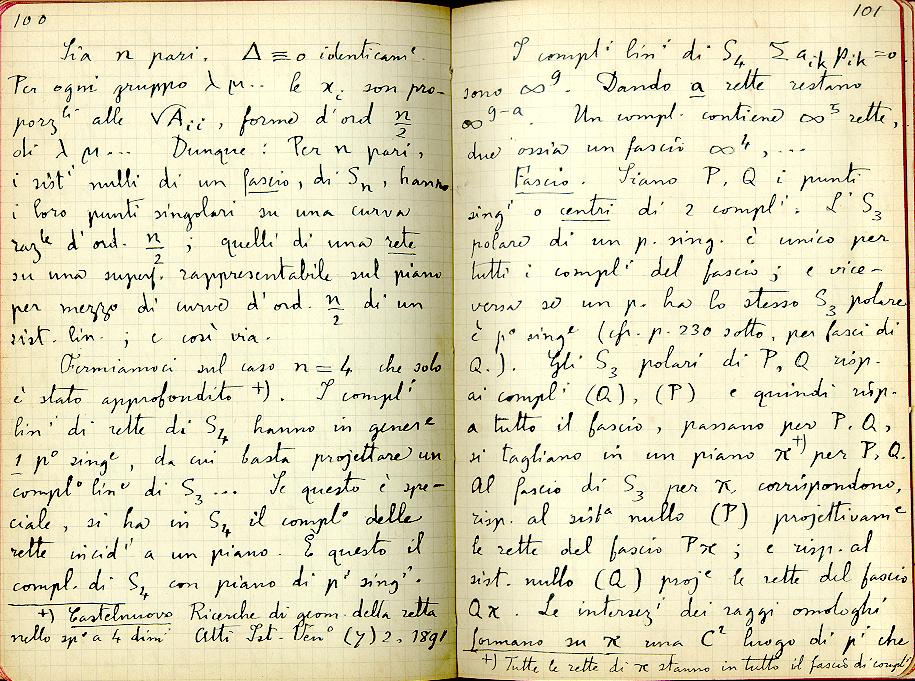 100
Sia n pari. Δ ≡ 0 identicamᵗ.
Per ogni gruppo λ μ... le xᵢ son pro-
porzˡⁱ alle √Aᵢᵢ, forme d'ord n/2
di λ μ... Dunque: Per n pari,
i sistⁱ nulli di un fascio, di Sₙ, hanno
i loro punti singolari su una curva
razˡᵉ d'ord. n/2; quelli di una rete
su una superf. rappresentabile sul piano
per mezzo di curve d'ord. n/2 di un
sist. lin.; e così via.
Fermiamoci sul caso n = 4 che solo
è stato approfondito +). I complⁱ
linⁱ di rette di S₄ hanno in genere
1 pᵒ singᵉ, da cui basta projettare un
complᵒ linᵉ di S₃... Se questo è spe-
ciale, si ha in S₄ il complᵒ delle
rette incidⁱ a un piano. È questo il
compl. di S₄ con piano di pⁱ singⁱ.
+) Castelnuovo Ricerche di geom. della retta
nello spᵒ a 4 dimⁱ Atti Ist. Venᵒ (7) 2, 1891
101
I complⁱ linⁱ di S₄ Σ aᵢₖ pᵢₖ = 0
sono ∞⁹. Dando a rette restano
∞⁹⁻ᵃ. Un compl. contiene ∞⁵ rette,
due ossia un fascio ∞⁴, ...
Fascio. Siano P, Q i punti
singⁱ o centri di 2 complⁱ. L' S₃
polare di un p. sing. è unico per
tutti i complⁱ del fascio; e vice-
versa se un p. ha lo stesso S₃ polare
è pᵒ singᵉ (cfr. p. 230 sotto, per fasci di
Q.). Gli S₃ polari di P, Q risp.
ai complⁱ (Q), (P) e quindi risp.
a tutto il fascio, passano per P, Q,
si tagliano in un piano π +) per P, Q.
Al fascio di S₃ per π corrispondono,
risp. al sistᵃ nullo (P) projettivamᵉ
le rette del fascio Pπ; e risp. al
sist. nullo (Q) projᵉ le rette del fascio
Qπ. Le intersezⁱ dei raggi omologhi
formano su π una C² luogo di pⁱ che
+) Tutte le rette di π stanno in tutto il fascio di complⁱ